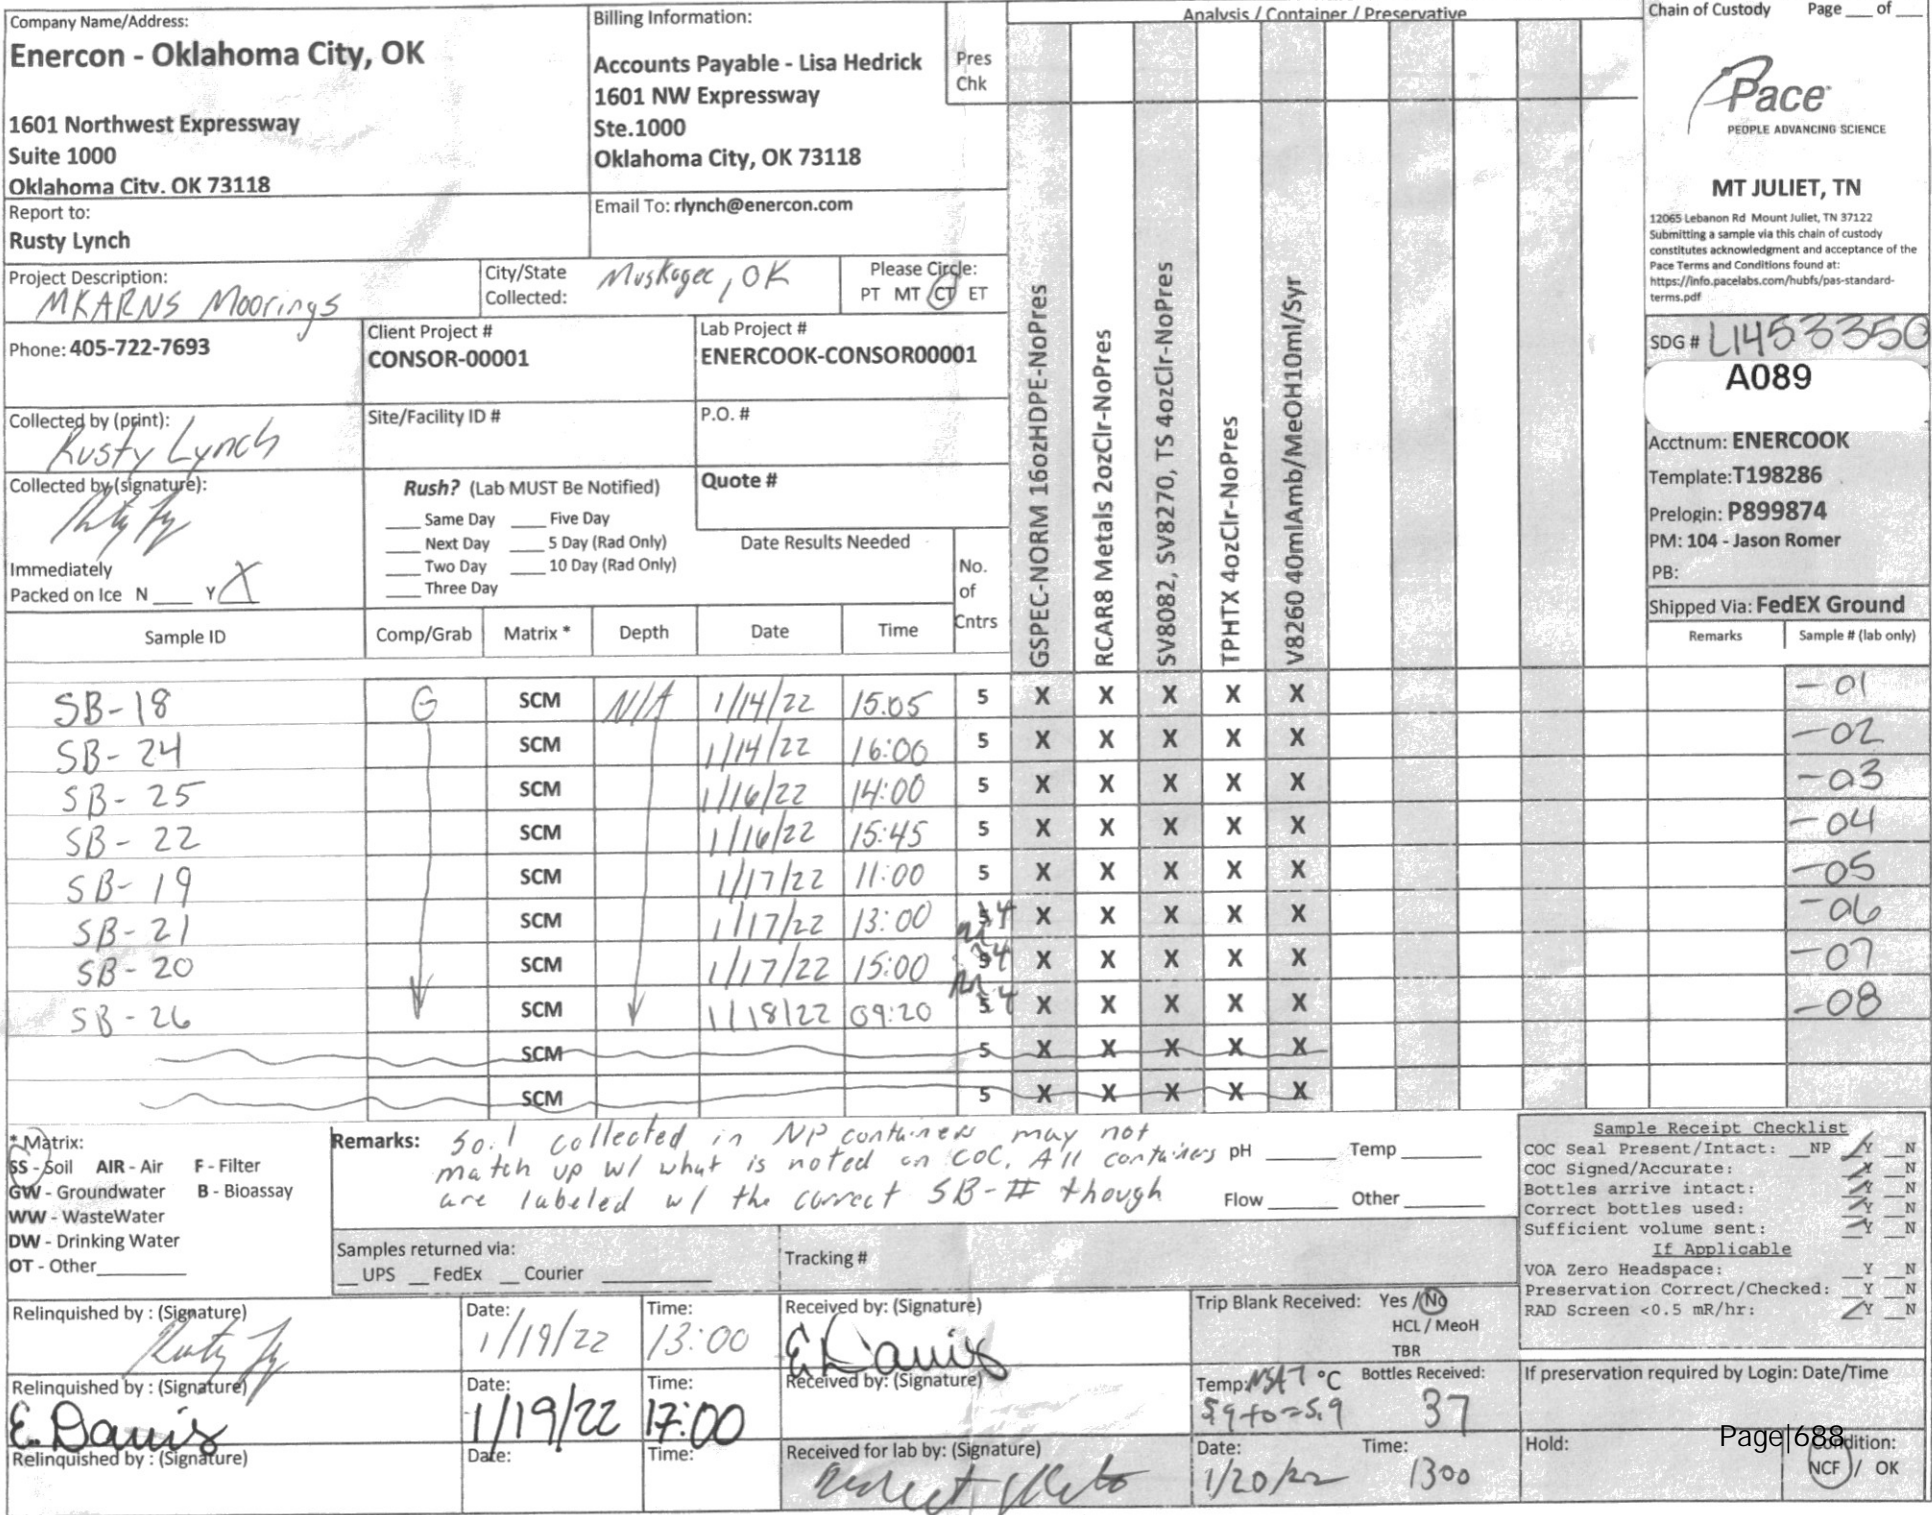 Company Name/Address:
Enercon - Oklahoma City, OK
1601 Northwest Expressway
Suite 1000
Oklahoma City, OK 73118
Billing Information:
Accounts Payable - Lisa Hedrick
1601 NW Expressway
Ste.1000
Oklahoma City, OK 73118
Pres
Chk
Analysis / Container / Preservative
Chain of Custody Page ___ of ___
Pace
PEOPLE ADVANCING SCIENCE
MT JULIET, TN
12065 Lebanon Rd Mount Juliet, TN 37122
Submitting a sample via this chain of custody
constitutes acknowledgment and acceptance of the
Pace Terms and Conditions found at:
https://info.pacelabs.com/hubfs/pas-standard-
terms.pdf
Report to:
Rusty Lynch
Email To: rlynch@enercon.com
Project Description:
MKARNS Moorings
City/State
Collected: Muskogee, OK
Please Circle:
PT MT CT ET
Phone: 405-722-7693
Client Project #
CONSOR-00001
Lab Project #
ENERCOOK-CONSOR00001
Collected by (print):
Rusty Lynch
Site/Facility ID #
P.O. #
Collected by (signature):
Immediately
Packed on Ice N ___ Y X
Rush? (Lab MUST Be Notified)
___ Same Day ___ Five Day
___ Next Day ___ 5 Day (Rad Only)
___ Two Day ___ 10 Day (Rad Only)
___ Three Day
Quote #
Date Results Needed
No.
of
Cntrs
GSPEC-NORM 16ozHDPE-NoPres
RCAR8 Metals 2ozClr-NoPres
SV8082, SV8270, TS 4ozClr-NoPres
TPHTX 4ozClr-NoPres
V8260 40mlAmb/MeOH10ml/Syr
SDG # L1453350
A089
Acctnum: ENERCOOK
Template:T198286
Prelogin: P899874
PM: 104 - Jason Romer
PB:
Shipped Via: FedEX Ground
Sample ID Comp/Grab Matrix * Depth Date Time Remarks Sample # (lab only)
SB-18 G SCM N/A 1/14/22 15:05 5 X X X X X -01
SB-24 SCM 1/14/22 16:00 5 X X X X X -02
SB-25 SCM 1/16/22 14:00 5 X X X X X -03
SB-22 SCM 1/16/22 15:45 5 X X X X X -04
SB-19 SCM 1/17/22 11:00 5 X X X X X -05
SB-21 SCM 1/17/22 13:00 5 4 X X X X X -06
SB-20 SCM 1/17/22 15:00 5 4 X X X X X -07
SB-26 SCM 1/18/22 09:20 5 4 X X X X X -08
SCM 5 X X X X X
SCM 5 X X X X X
* Matrix:
SS - Soil AIR - Air F - Filter
GW - Groundwater B - Bioassay
WW - WasteWater
DW - Drinking Water
OT - Other
Remarks: Soil collected in NP containers may not
match up w/ what is noted on COC. All containers
are labeled w/ the correct SB-# though
pH ___ Temp ___
Flow ___ Other ___
Samples returned via:
__ UPS __ FedEx __ Courier
Tracking #
Sample Receipt Checklist
COC Seal Present/Intact: __NP __Y __N
COC Signed/Accurate: __Y __N
Bottles arrive intact: __Y __N
Correct bottles used: __Y __N
Sufficient volume sent: __Y __N
If Applicable
VOA Zero Headspace: __Y __N
Preservation Correct/Checked: __Y __N
RAD Screen <0.5 mR/hr: __Y __N
Relinquished by : (Signature)
Date: 1/19/22
Time: 13:00
Received by: (Signature)
E. Davis
Trip Blank Received: Yes / No
HCL / MeoH
TBR
Relinquished by : (Signature)
E. Davis
Date: 1/19/22
Time: 17:00
Received by: (Signature)
Temp: °C
5.9+0=5.9
Bottles Received:
37
If preservation required by Login: Date/Time
Relinquished by : (Signature)
Date:
Time:
Received for lab by: (Signature)
Date: 1/20/22
Time: 1300
Hold:
Page|688
Condition:
NCF / OK